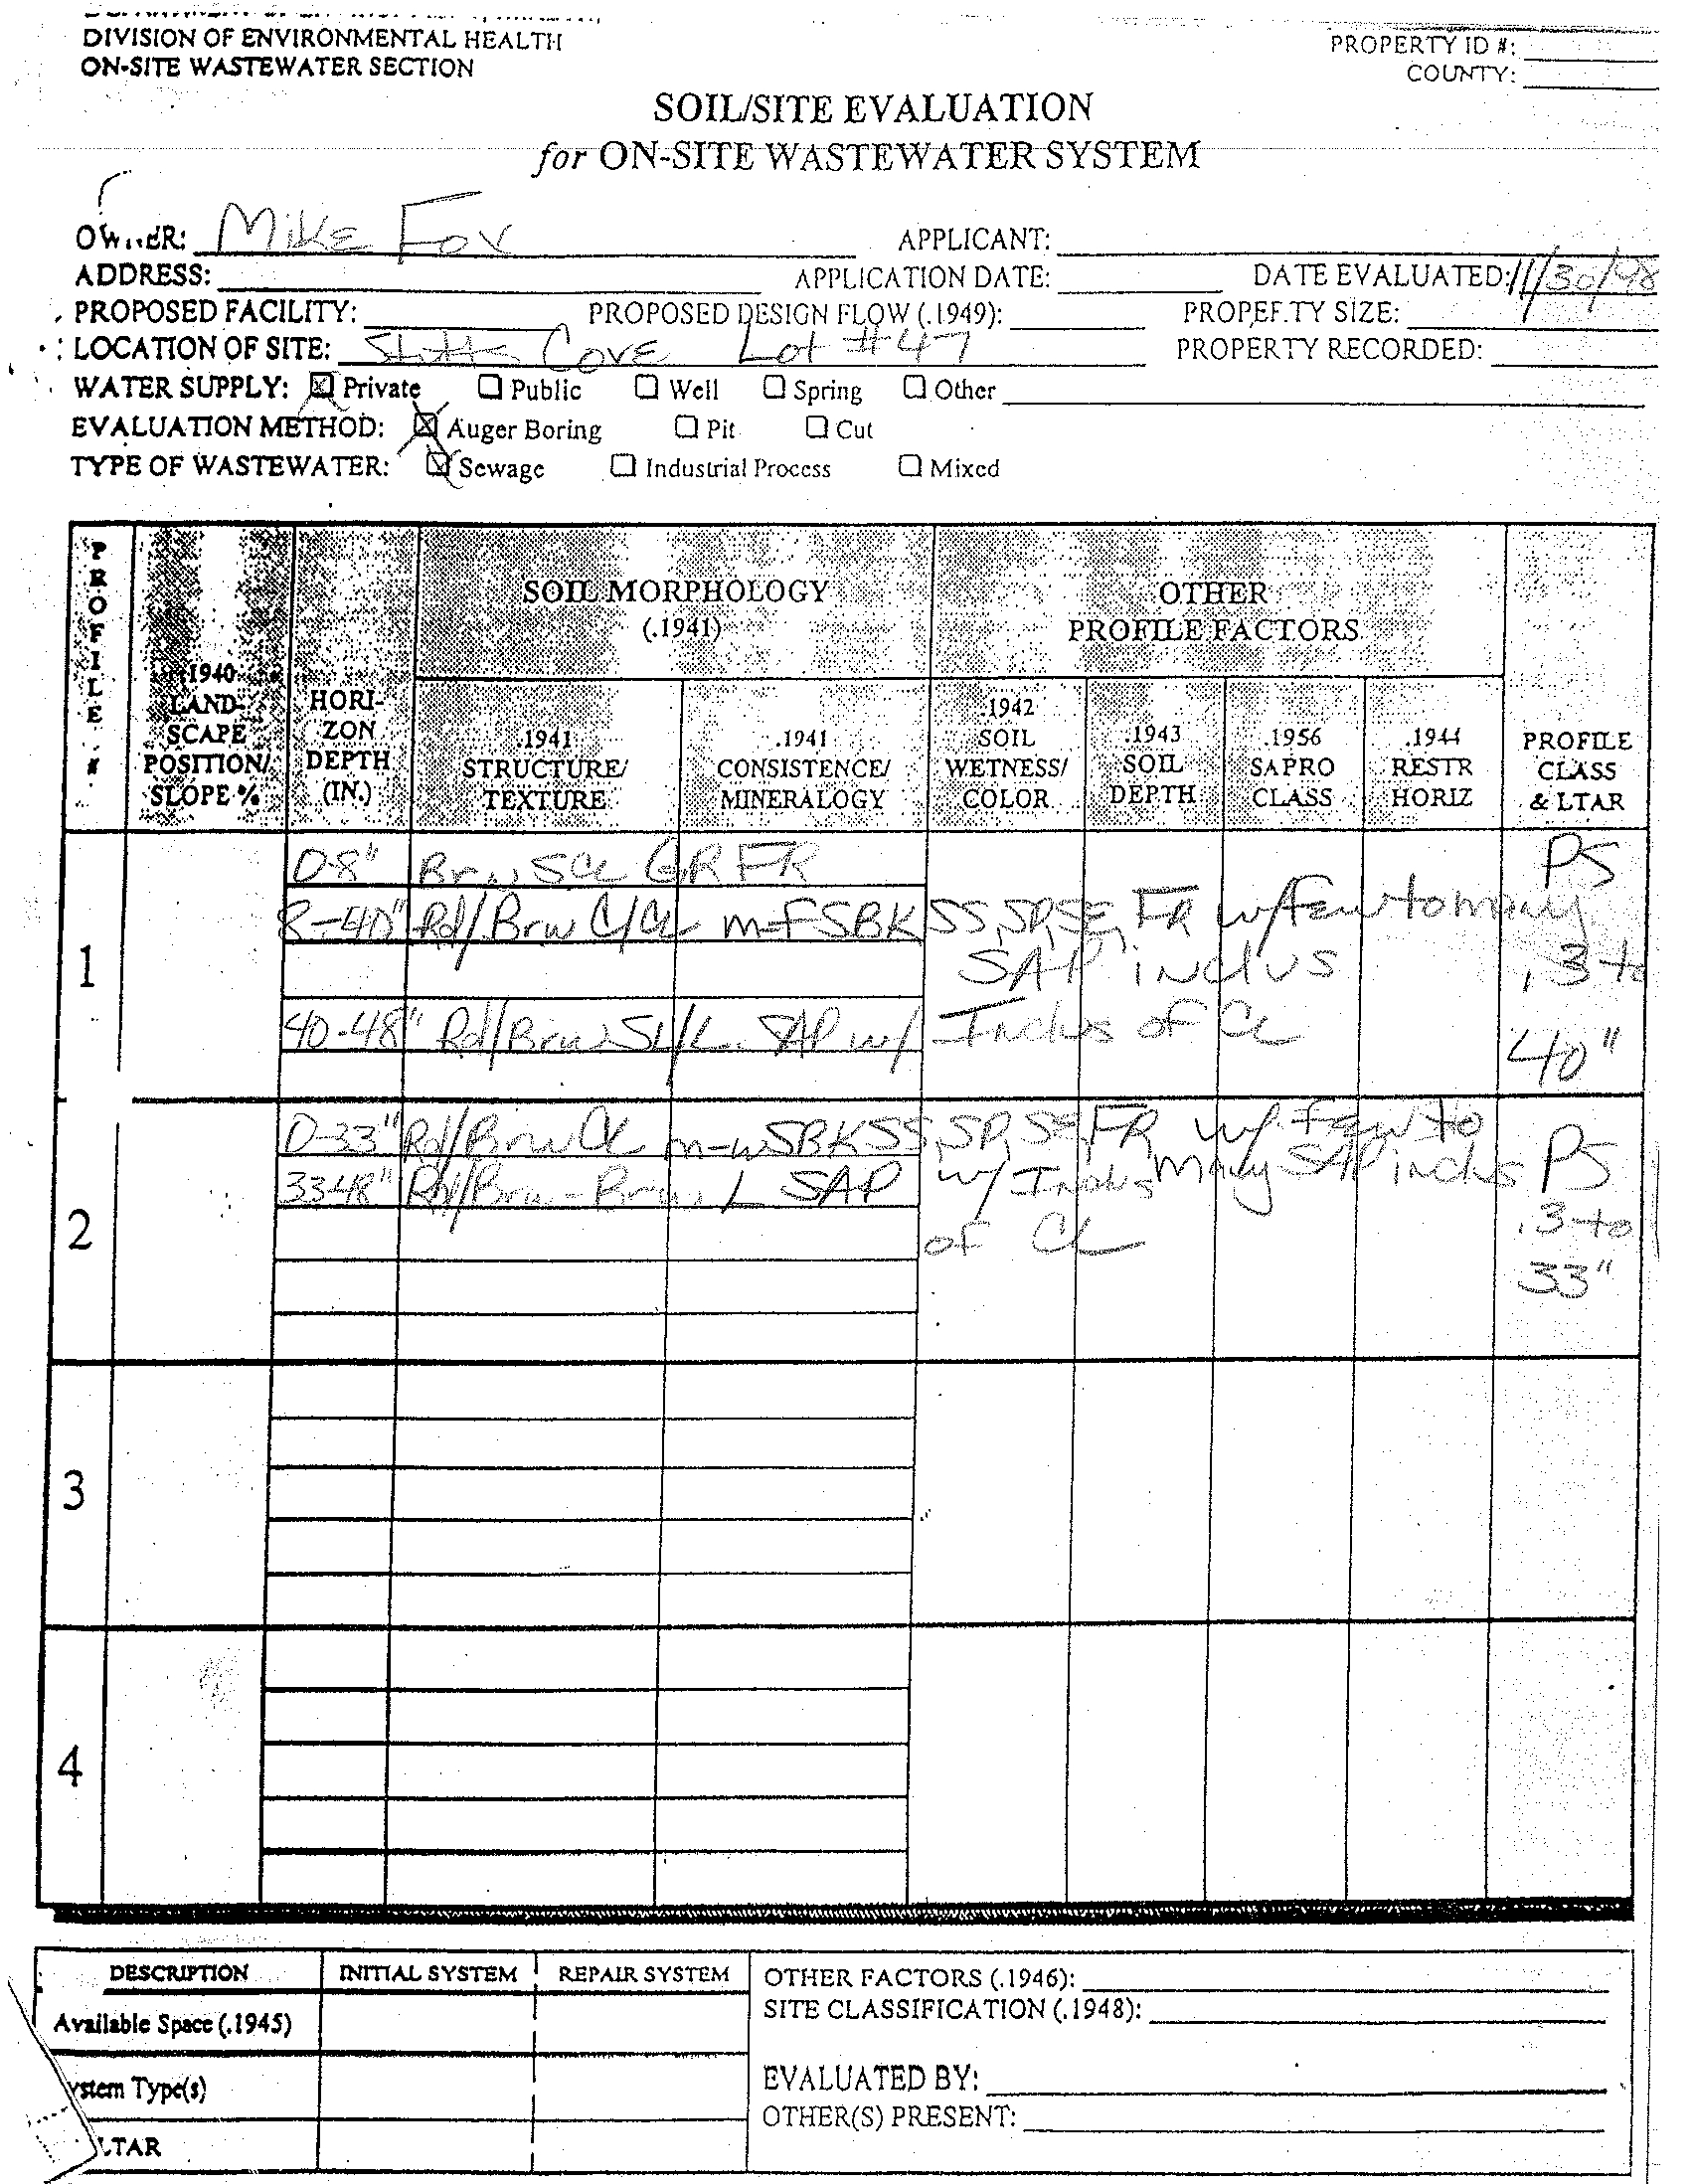 DIVISION OF ENVIRONMENTAL HEALTH
ON-SITE WASTEWATER SECTION
PROPERTY ID #:
COUNTY:
SOIL/SITE EVALUATION
for ON-SITE WASTEWATER SYSTEM
OWNER: Mike Fox
APPLICANT:
ADDRESS:
APPLICATION DATE:
DATE EVALUATED: 11/30/98
PROPOSED FACILITY:
PROPOSED DESIGN FLOW (.1949):
PROPERTY SIZE:
LOCATION OF SITE: Stutts Cove Lot #47
PROPERTY RECORDED:
WATER SUPPLY: ☒ Private ☐ Public ☐ Well ☐ Spring ☐ Other
EVALUATION METHOD: ☒ Auger Boring ☐ Pit ☐ Cut
TYPE OF WASTEWATER: ☒ Sewage ☐ Industrial Process ☐ Mixed
PROFILE #
.1940 LAND-SCAPE POSITION/ SLOPE %
HORI-ZON DEPTH (IN.)
SOIL MORPHOLOGY (.1941)
.1941 STRUCTURE/ TEXTURE
.1941 CONSISTENCE/ MINERALOGY
OTHER PROFILE FACTORS
.1942 SOIL WETNESS/ COLOR
.1943 SOIL DEPTH
.1956 SAPRO CLASS
.1944 RESTR HORIZ
PROFILE CLASS & LTAR
1
0-8" Brw SCL GR FR
8-40" Rd/Brw C/CL m-f SBK SS, SP, SE, FR w/few to many
SAP inclus
40-48" Rd/Brw SL/L SAP w/ Inclus of CL
PS
.3 to
40"
2
0-33" Rd/Brw CL m-w SBK SS, SP, SE, FR w/ few to
many SAP inclus
33-48" Rd/Brw-Brw L SAP w/ Inclus
of CL
PS
.3 to
33"
3
4
DESCRIPTION
INITIAL SYSTEM
REPAIR SYSTEM
OTHER FACTORS (.1946):
SITE CLASSIFICATION (.1948):
Available Space (.1945)
EVALUATED BY:
ystem Type(s)
OTHER(S) PRESENT:
LTAR